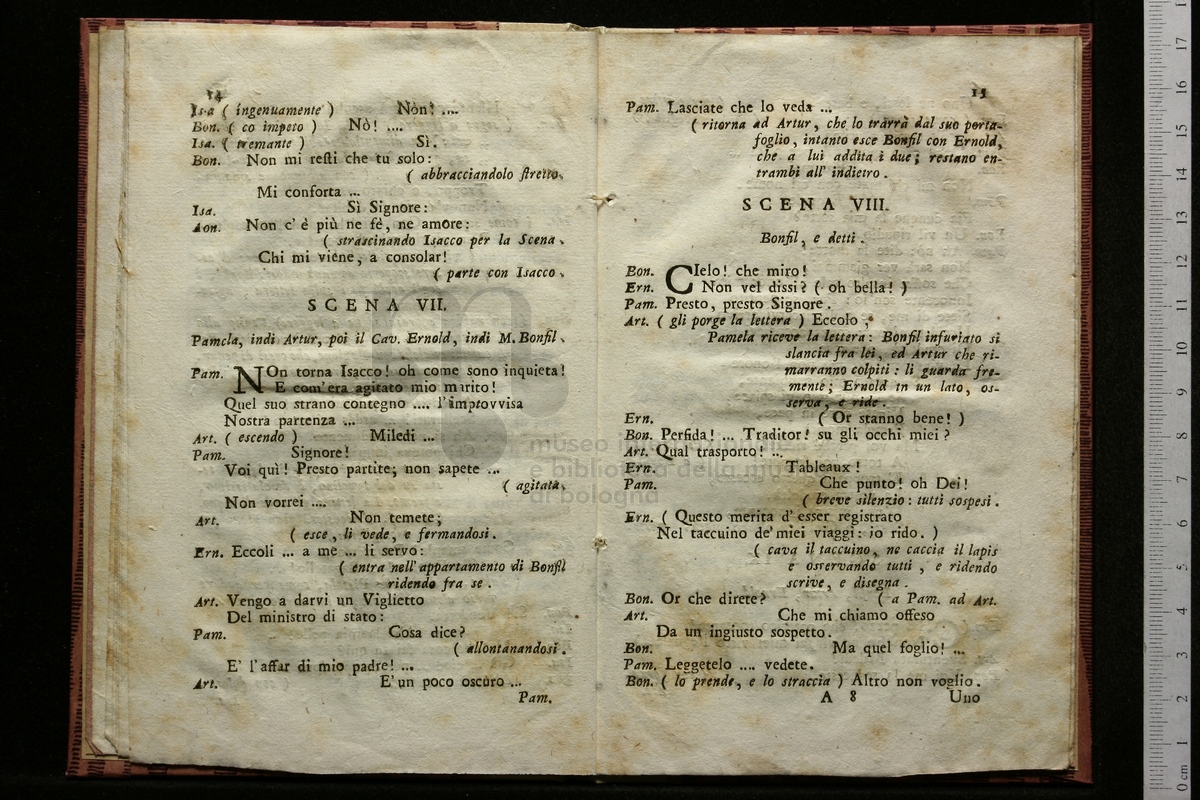 14
Isa ( ingenuamente ) Non? ....
Bon. ( co impeto ) Nò! ....
Isa. ( tremante ) Sì.
Bon. Non mi resti che tu solo:
( abbracciandolo stretto.
Mi conforta ...
Isa. Sì Signore:
Aon. Non c'è più ne fè, ne amore:
( strascinando Isacco per la Scena.
Chi mi viene, a consolar!
( parte con Isacco.
SCENA VII.
Pamela, indi Artur, poi il Cav. Ernold, indi M. Bonfil.
Pam. NOn torna Isacco! oh come sono inquieta!
E com'era agitato mio marito!
Quel suo strano contegno .... l'improvvisa
Nostra partenza ...
Art. ( escendo ) Miledi ...
Pam. Signore!
Voi quì! Presto partite; non sapete ...
( agitata.
Non vorrei ....
Art. Non temete;
( esce, li vede, e fermandosi.
Ern. Eccoli ... a me ... li servo:
( entra nell'appartamento di Bonfil
ridendo fra se.
Art. Vengo a darvi un Viglietto
Del ministro di stato:
Pam. Cosa dice?
( allontanandosi.
E' l'affar di mio padre! ...
Art. E'un poco oscuro ...
Pam.
15
Pam. Lasciate che lo veda ...
( ritorna ad Artur, che lo trarrà dal suo porta-
foglio, intanto esce Bonfil con Ernold,
che a lui addita i due; restano en-
trambi all' indietro.
SCENA VIII.
Bonfil, e detti.
Bon. CIelo! che miro!
Ern. Non vel dissi? ( oh bella! )
Pam. Presto, presto Signore.
Art. ( gli porge la lettera ) Eccolo;
Pamela riceve la lettera: Bonfil infuriato si
slancia fra lei, ed Artur che ri-
marranno colpiti: li guarda fre-
mente; Ernold in un lato, os-
serva, e ride.
Ern. ( Or stanno bene! )
Bon. Perfida! ... Traditor! su gli occhi miei?
Art. Qual trasporto! ...
Ern. Tableaux!
Pam. Che punto! oh Dei!
( breve silenzio: tutti sospesi.
Ern. ( Questo merita d'esser registrato
Nel taccuino de'miei viaggi: io rido. )
( cava il taccuino, ne caccia il lapis
e osservando tutti, e ridendo
scrive, e disegna.
Bon. Or che direte? ( a Pam. ad Art.
Art. Che mi chiamo offeso
Da un ingiusto sospetto.
Bon. Ma quel foglio! ...
Pam. Leggetelo .... vedete.
Bon. ( lo prende, e lo straccia ) Altro non voglio.
A 8 Uno
museo internazionale
e biblioteca della musica
di bologna
0 cm 1 2 3 4 5 6 7 8 9 10 11 12 13 14 15 16 17